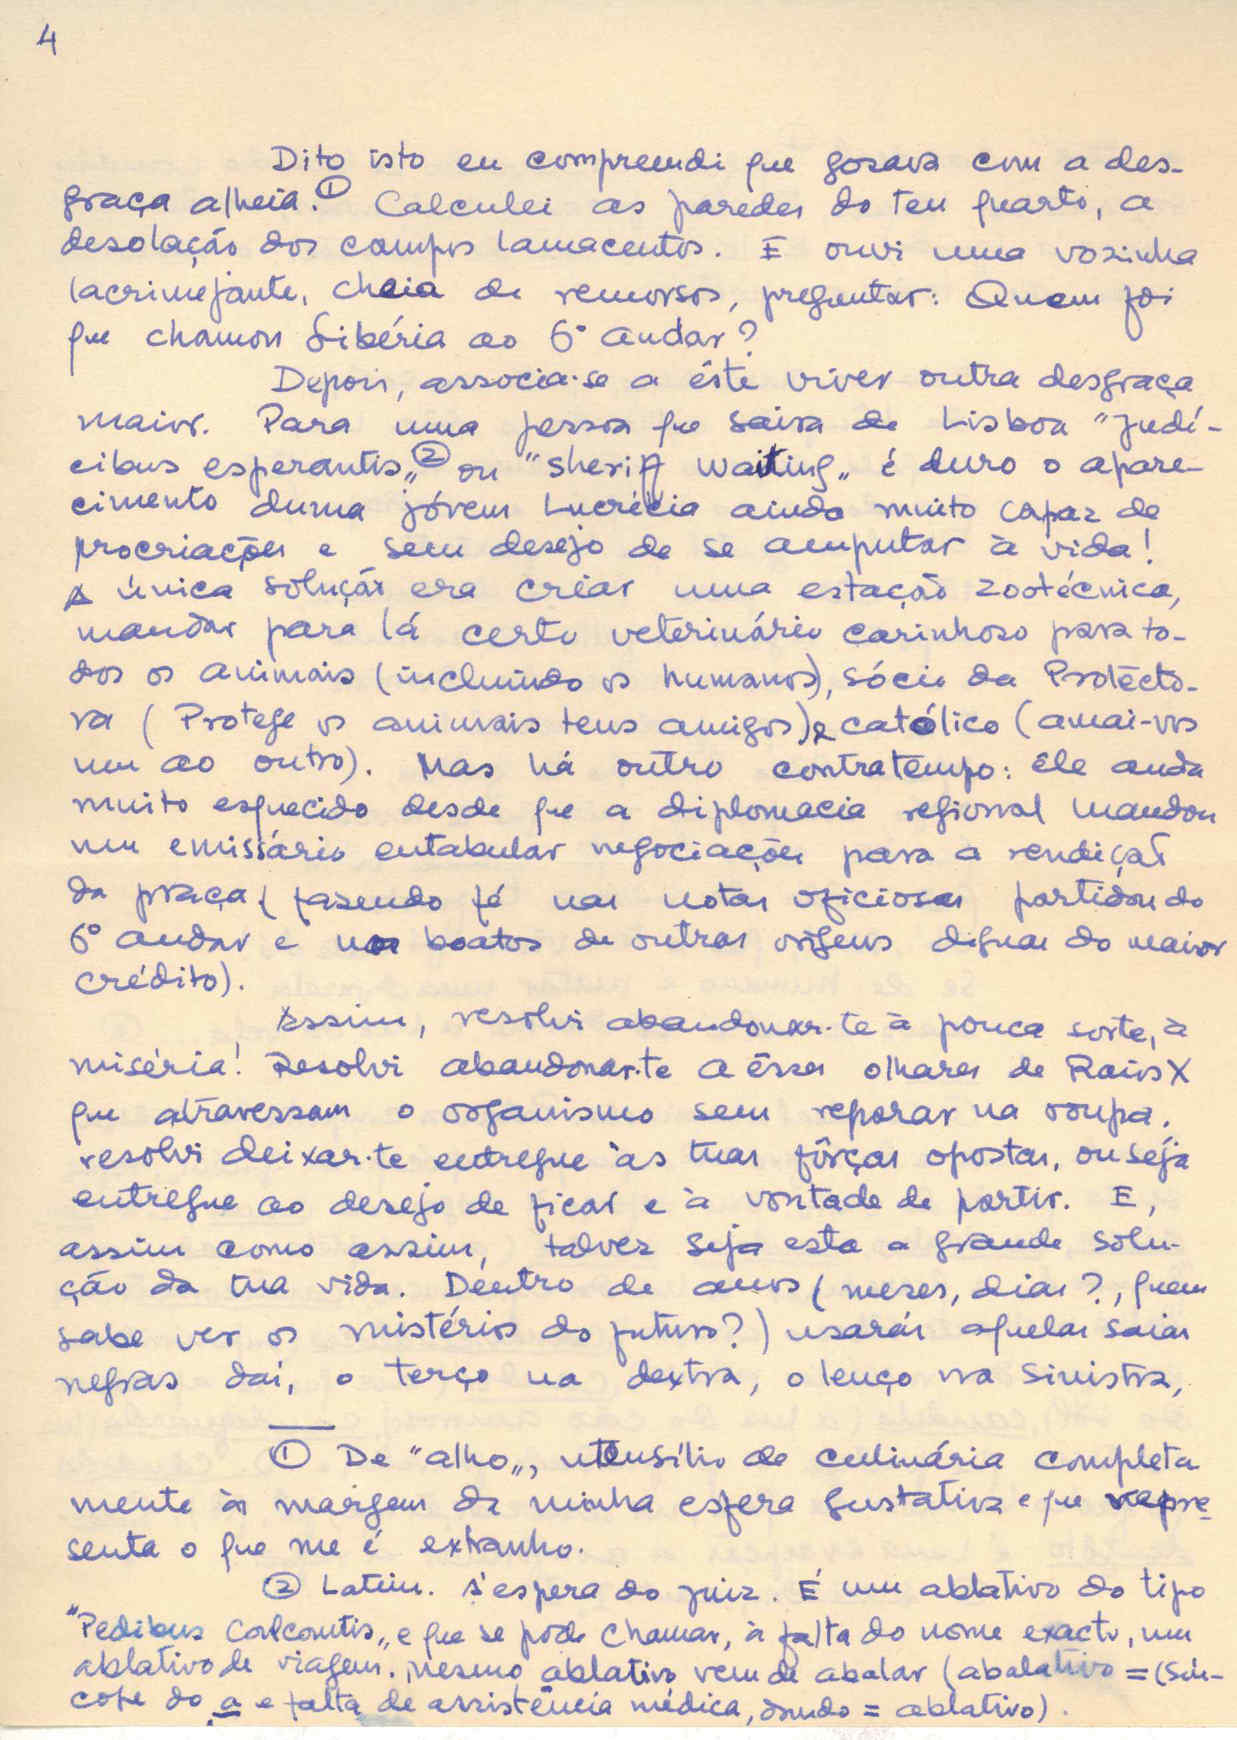 4
Dito isto eu compreendi que gosava com a des-
graça alheia.① Calculei as paredes do teu quarto, a
desolação dos campos lamacentos. E ouvi uma vozinha
lacrimejante, cheia de remorsos, preguntar: Quem foi
que chamou Sibéria ao 6º andar?
Depois, associa-se a êste viver outra desgraça
maior. Para uma pessoa que saira de Lisboa "judí-
cibus esperantis„② ou "sheriff waiting„ é duro o apare-
cimento duma jóvem Lucrécia ainda muito capaz de
procriações e sem desejo de se amputar à vida!
A única solução era criar uma estação zootécnica,
mandar para lá certo veterinário carinhoso para to-
dos os animais (incluindo os humanos), sócio da Protecto-
ra (Protege os animais teus amigos) e católico (amai-vos
um ao outro). Mas há outro contratempo: êle anda
muito esquecido desde que a diplomacia regional mandou
um emissário entabular negociações para a rendição
da praça (fazendo fé nas notas oficiosas partidas do
6º andar e nos boatos de outras origens dignas do maior
crédito).
Assim, resolvi abandonar-te à pouca sorte, à
miséria! Resolvi abandonar-te a êsses olhares de Raios X
que atravessam o organismo sem reparar na roupa,
resolvi deixar-te entregue às tuas fôrças opostas, ou seja
entregue ao desejo de ficar e à vontade de partir. E,
assim como assim, talvez seja esta a grande solu-
ção da tua vida. Dentro de anos (meses, dias?, quem
sabe ver os mistérios do futuro?) usarás aquelas saias
negras daí, o terço na dextra, o lenço na sinistra,
① De "alho„, utensílio de culinária completa
mente à margem da minha esfera gustativa e que repre-
senta o que me é extranho.
② Latim. À espera do juiz. É um ablativo do tipo
"Pedibus Calcantis„ e que se pode chamar, à falta do nome exacto, um
ablativo de viagem. Mesmo ablativo vem de abalar (abalativo = (Sín-
cope do a e falta de assistência médica, dando = ablativo).